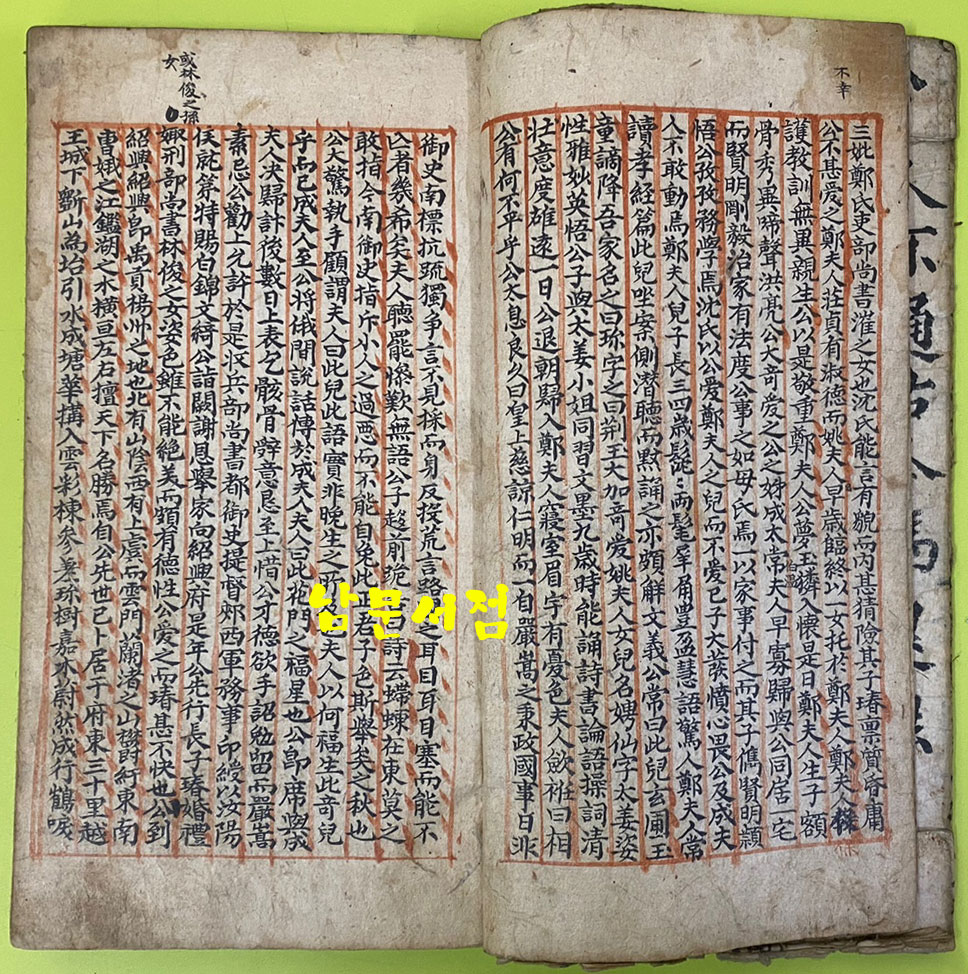 不幸
三妣鄭氏吏部尚書漼之女也沈氏能言有貌而內甚猜險其子瑃禀質昏庸
公不甚愛之鄭夫人莊貞有淑德而姚夫人早歲臨終以一女托於鄭夫人鄭夫人
護敎訓無異親生公以是敬重鄭夫人公夢玉獜入懷是日鄭夫人生子額
骨秀異啼聲洪亮公大奇愛之公之姊成太常夫人早寡歸與公同居一宅
而賢明剛毅治家有法度公事之如母氏焉一以家事付之而其子儁賢明穎
悟公孜孜務學焉沈氏以公愛鄭夫人之兒而不愛己子大羨憤心畏公及成夫
人不敢動焉鄭夫人兒子長三四歲髧髧兩髦犀角豊盈慧語驚人鄭夫人常
讀孝經篇此兒坐案側潜聽而黙誦之亦頗解文義公常曰此兒玄圃玉
童謫降吾家名之曰珎字之曰荆玉大加竒愛姚夫人女兒名娉仙字太姜姿
性雅妙英悟公子與太姜小姐同習文墨九歲時能誦詩書論語操詞清
壮意度雄遠一日公退朝歸入鄭夫人寢室眉宇有憂色夫人斂袵曰相
公有何不平乎公太息良久曰皇上慈諒仁明而一自嚴嵩之秉政國事日非
或林俊之孫
女
御史南標抗疏獨爭言不見採而身反投荒言路之耳目耳目塞而能不
亡者幾希矣夫人聽罷慘歎無語公子趍前跪曰詩云蝃蝀在東莫之
敢指今南御史指斥小人之過惡而不能自免此正君子色斯舉矣之秋也
公大驚執手顧謂夫人曰此兒此語實非晚生之所及夫人以何福生此竒兒
乎而已成夫人至公將俄間說話傳於成夫人夫人曰此花門之福星也公卽席與成
夫人決歸計後數日上表乞骸骨辭意恳至上惜公才德欲手詔勉留而嚴嵩
素忌公勸上允許於是收兵部尚書都御史提督郟西軍務事印綬以汝陽
侯就第特賜白錦文綺公詣闕謝恩擧家向紹興府是年公先行長子瑃婚禮
娵刑部尚書林俊之女姿色雖不能絕美而頗有德性公愛之而瑃甚不快也公到
紹興紹興卽禹貢楊州之地也北有山陰西有上虞而雲門蘭渚之山欝紆東南
曺娥之江鑑湖之水橫亘左右擅天下名勝焉自公先世已卜居于府東三十里越
王城下斷山為坮引水成塘華搆入雲彩棟參差珎樹嘉木蔚然成行鶴唳
남문서점